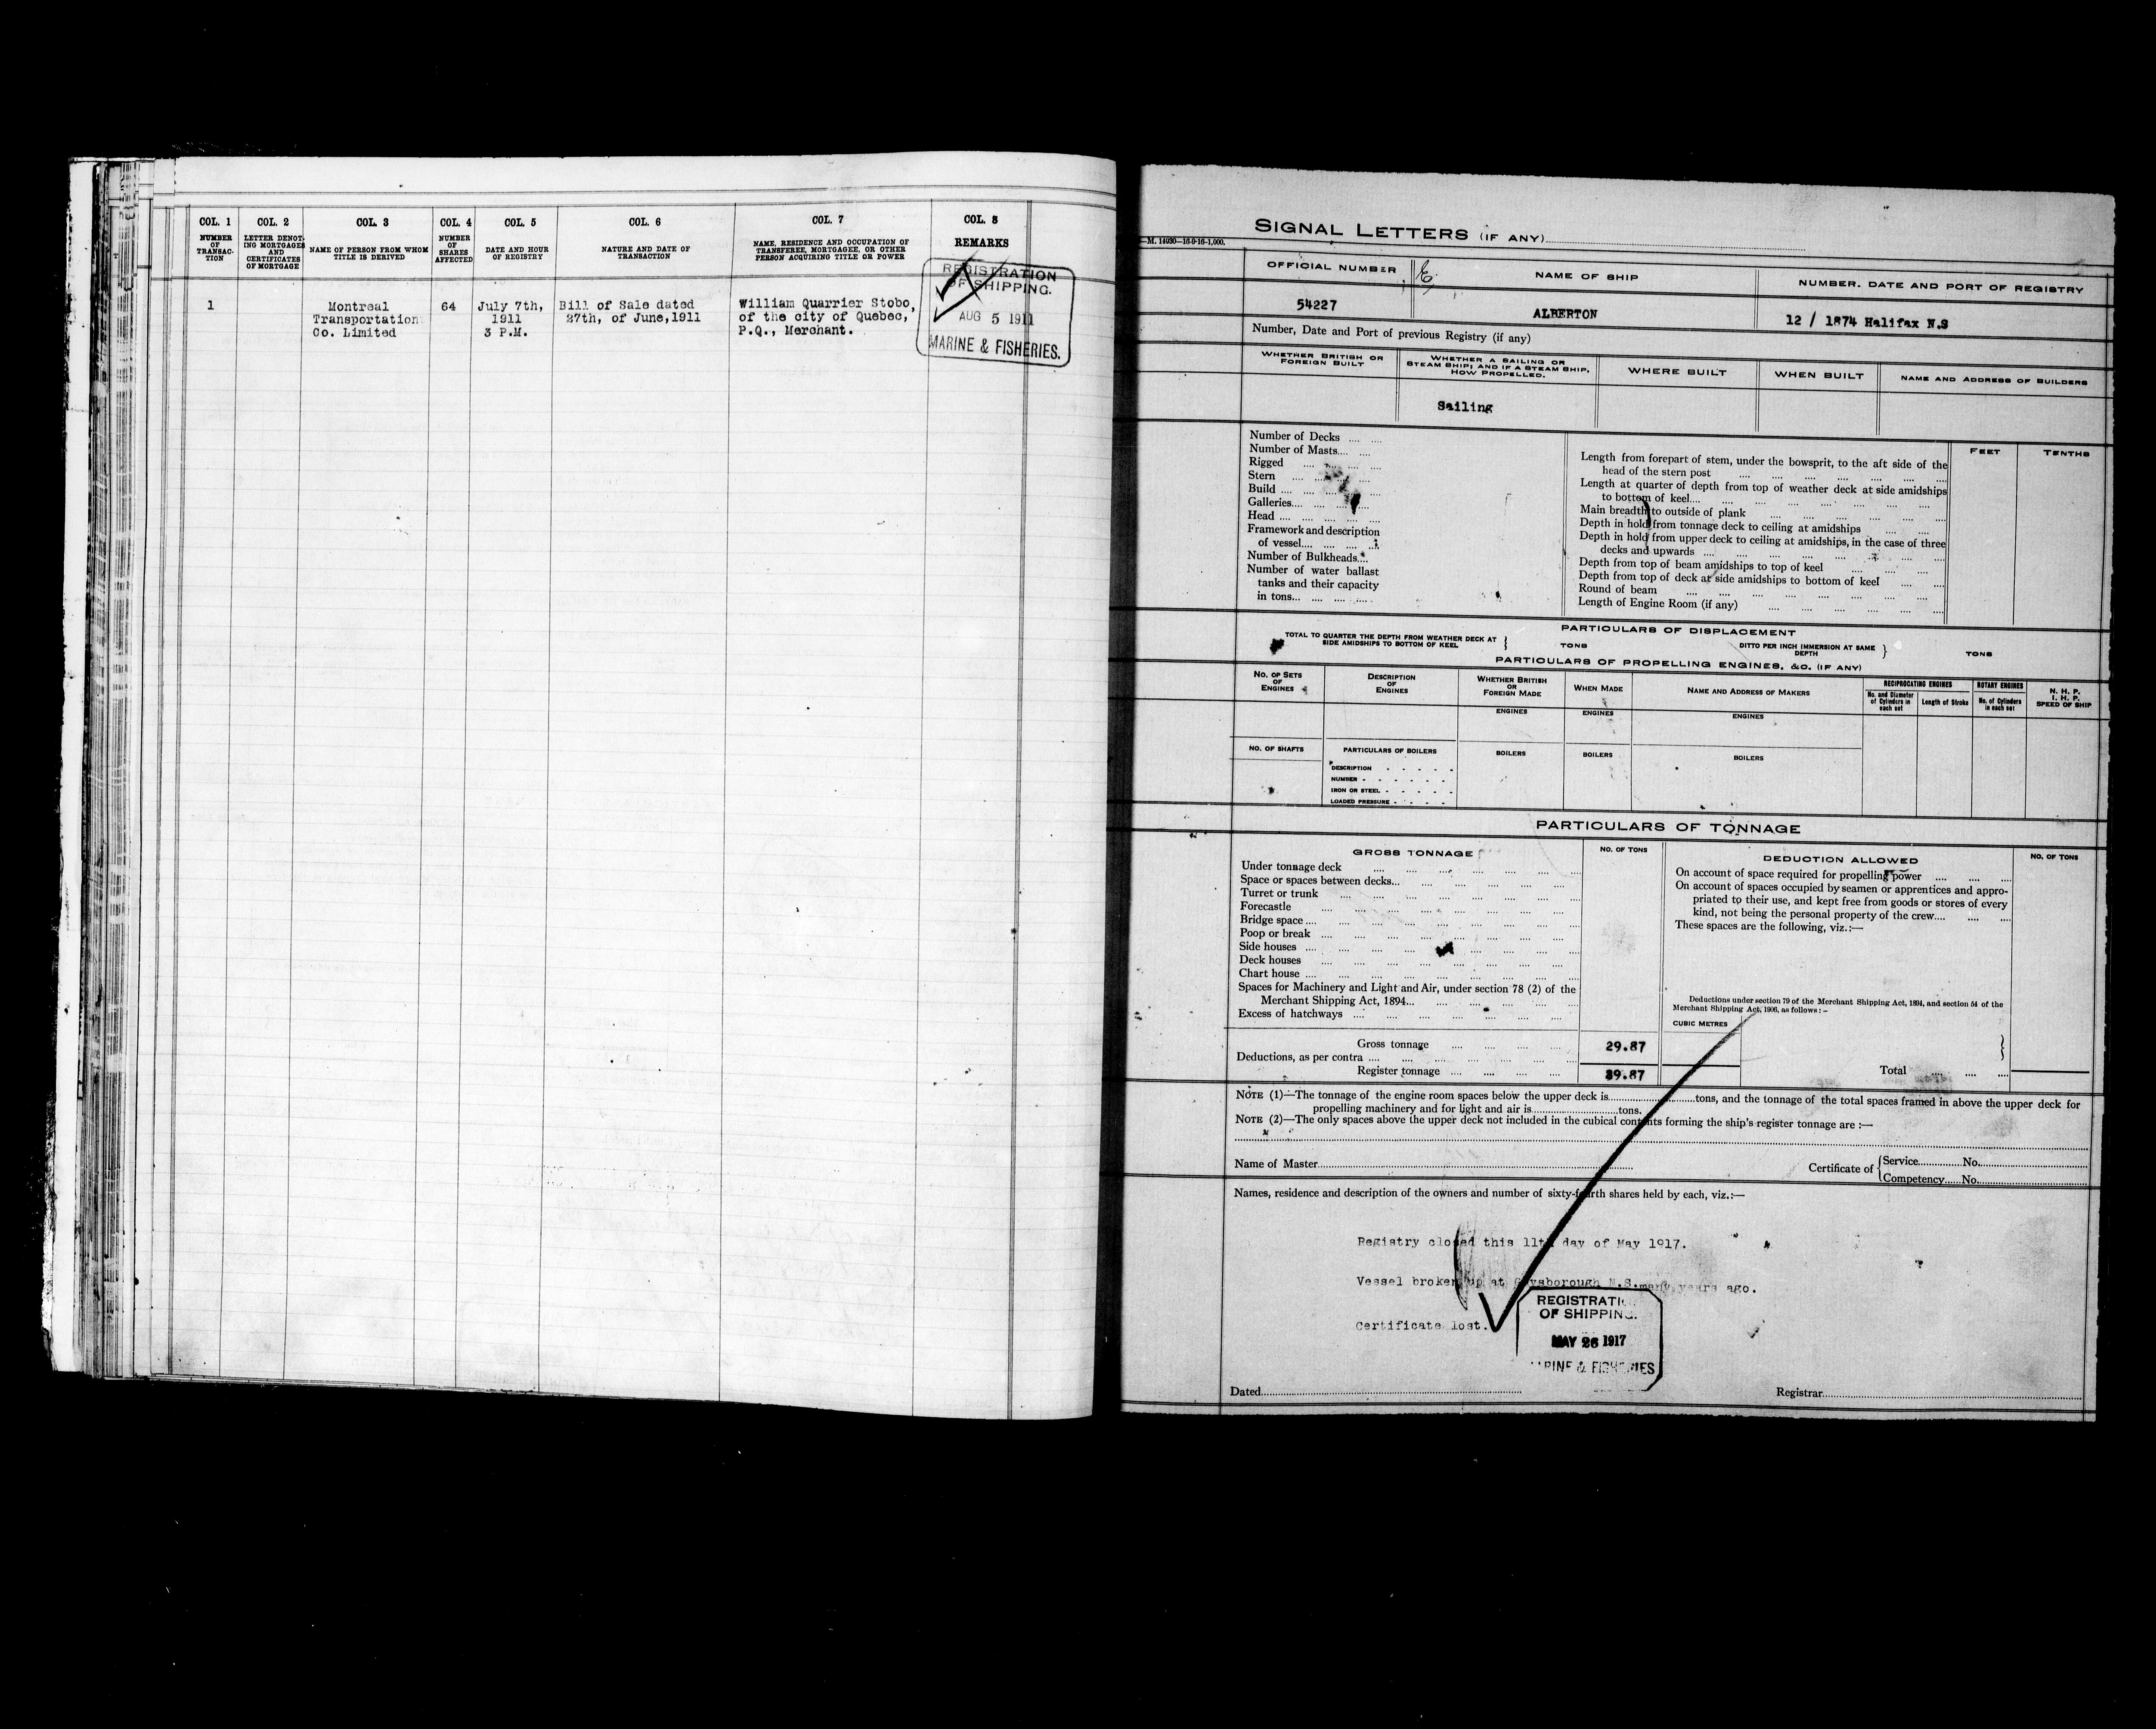 COL. 1 COL. 2 COL. 3 COL. 4 COL. 5 COL. 6 COL. 7 COL. 8
NUMBER OF TRANSAC-TION
LETTER DENOT-ING MORTGAGES AND CERTIFICATES OF MORTGAGE
NAME OF PERSON FROM WHOM TITLE IS DERIVED
NUMBER OF SHARES AFFECTED
DATE AND HOUR OF REGISTRY
NATURE AND DATE OF TRANSACTION
NAME, RESIDENCE AND OCCUPATION OF TRANSFEREE, MORTGAGEE, OR OTHER PERSON ACQUIRING TITLE OR POWER
REMARKS
REGISTRATION
OF SHIPPING.
AUG 5 1911
MARINE & FISHERIES.
1 Montreal 64 July 7th, Bill of Sale dated William Quarrier Stobo,
Transportation 1911 27th, of June,1911 of the city of Quebec,
Co. Limited 3 P.M. P.Q., Merchant.
SIGNAL LETTERS (IF ANY)
—M. 14030—16-9-16-1,000.
OFFICIAL NUMBER NAME OF SHIP NUMBER, DATE AND PORT OF REGISTRY
54227 ALBERTON 12 / 1874 Halifax N.S
Number, Date and Port of previous Registry (if any)
WHETHER BRITISH OR FOREIGN BUILT
WHETHER A SAILING OR STEAM SHIP; AND IF A STEAM SHIP, HOW PROPELLED.
WHERE BUILT WHEN BUILT NAME AND ADDRESS OF BUILDERS
Sailing
Number of Decks
Number of Masts
Rigged
Stern
Build
Galleries
Head
Framework and description
of vessel
Number of Bulkheads
Number of water ballast
tanks and their capacity
in tons
FEET TENTHS
Length from forepart of stem, under the bowsprit, to the aft side of the
head of the stern post
Length at quarter of depth from top of weather deck at side amidships
to bottom of keel
Main breadth to outside of plank
Depth in hold from tonnage deck to ceiling at amidships
Depth in hold from upper deck to ceiling at amidships, in the case of three
decks and upwards
Depth from top of beam amidships to top of keel
Depth from top of deck at side amidships to bottom of keel
Round of beam
Length of Engine Room (if any)
PARTICULARS OF DISPLACEMENT
TOTAL TO QUARTER THE DEPTH FROM WEATHER DECK AT SIDE AMIDSHIPS TO BOTTOM OF KEEL } TONS
DITTO PER INCH IMMERSION AT SAME DEPTH } TONS
PARTICULARS OF PROPELLING ENGINES, &C. (IF ANY)
NO. OF SETS OF ENGINES
DESCRIPTION OF ENGINES
WHETHER BRITISH OR FOREIGN MADE
WHEN MADE
NAME AND ADDRESS OF MAKERS
RECIPROCATING ENGINES
No. and Diameter of Cylinders in each set
Length of Stroke
ROTARY ENGINES
No. of Cylinders in each set
N. H. P.
I. H. P.
SPEED OF SHIP
ENGINES ENGINES ENGINES
NO. OF SHAFTS PARTICULARS OF BOILERS BOILERS BOILERS BOILERS
DESCRIPTION
NUMBER
IRON OR STEEL
LOADED PRESSURE
PARTICULARS OF TONNAGE
GROSS TONNAGE NO. OF TONS
Under tonnage deck
Space or spaces between decks
Turret or trunk
Forecastle
Bridge space
Poop or break
Side houses
Deck houses
Chart house
Spaces for Machinery and Light and Air, under section 78 (2) of the
Merchant Shipping Act, 1894
Excess of hatchways
Gross tonnage 29.87
Deductions, as per contra
Register tonnage 39.87
DEDUCTION ALLOWED NO. OF TONS
On account of space required for propelling power
On account of spaces occupied by seamen or apprentices and appro-
priated to their use, and kept free from goods or stores of every
kind, not being the personal property of the crew
These spaces are the following, viz.:—
Deductions under section 79 of the Merchant Shipping Act, 1894, and section 54 of the
Merchant Shipping Act, 1906, as follows:—
CUBIC METRES
Total
NOTE (1)—The tonnage of the engine room spaces below the upper deck is tons, and the tonnage of the total spaces framed in above the upper deck for
propelling machinery and for light and air is tons.
NOTE (2)—The only spaces above the upper deck not included in the cubical contents forming the ship's register tonnage are :—
Name of Master Certificate of { Service No.
Competency No.
Names, residence and description of the owners and number of sixty-fourth shares held by each, viz.:—
Registry closed this 11th day of May 1917.
Vessel broken up at Guysborough N.S. many years ago.
Certificate lost.
REGISTRATI
OF SHIPPING.
MAY 26 1917
MARINE & FISHERIES
Dated Registrar